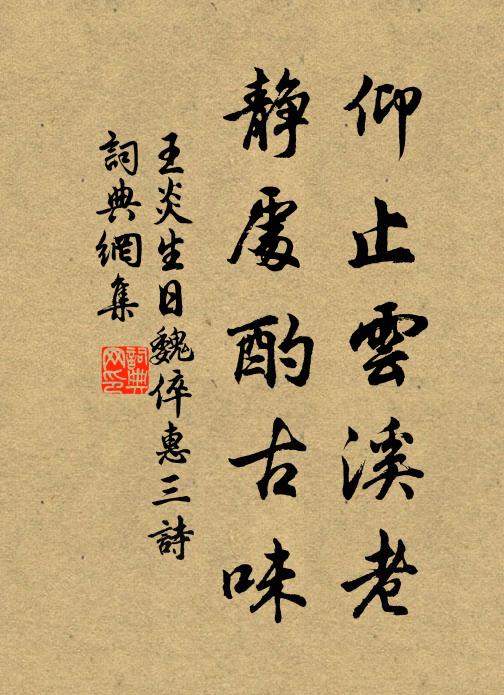 仰止雲溪老
靜處酌古味
王炎生日魏倅惠三詩
詞典網集
詞典
网印